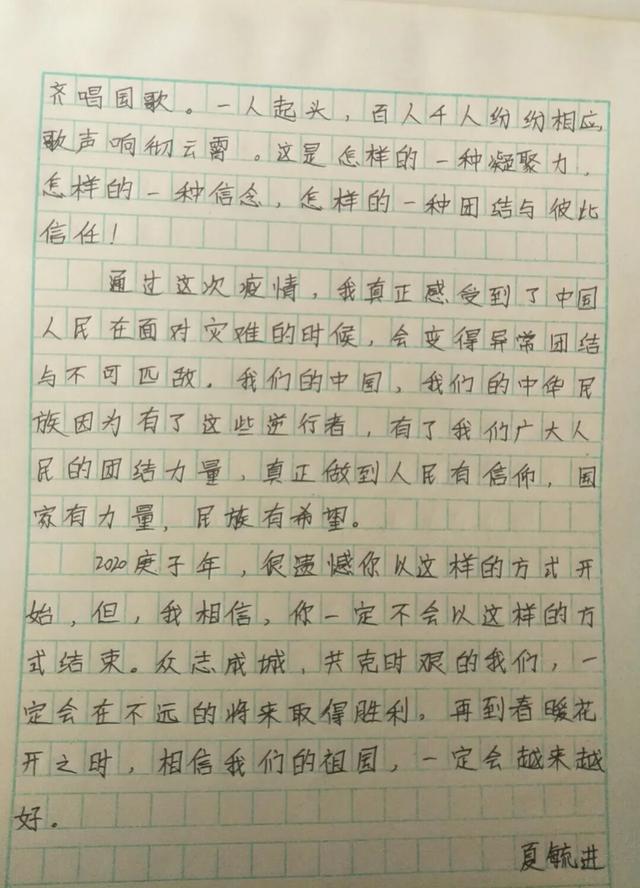 齐唱国歌。一人起头，百人千人纷纷相应，
歌声响彻云霄。这是怎样的一种凝聚力，
怎样的一种信念，怎样的一种团结与彼此
信任！
通过这次疫情，我真正感受到了中国
人民在面对灾难的时候，会变得异常团结
与不可匹敌。我们的中国，我们的中华民
族因为有了这些逆行者，有了我们广大人
民的团结力量，真正做到人民有信仰，国
家有力量，民族有希望。
2020庚子年，很遗憾你以这样的方式开
始，但，我相信，你一定不会以这样的方
式结束。众志成城，共克时艰的我们，一
定会在不远的将来取得胜利。再到春暖花
开之时，相信我们的祖国，一定会越来越
好。
夏毓进